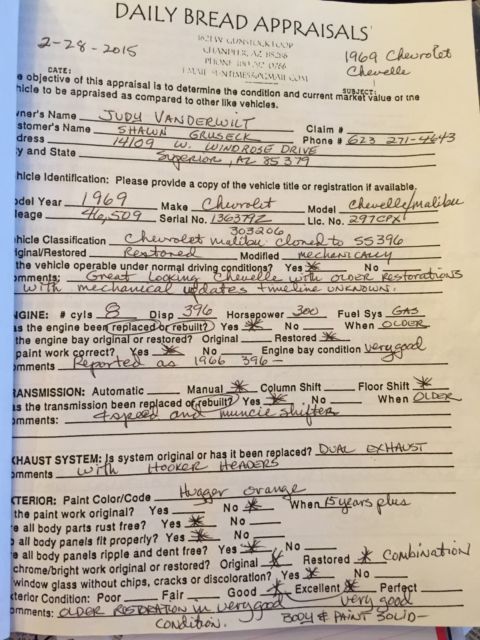 DAILY BREAD APPRAISALS
CHANDLER, AZ 85286
2-28-2015
1969 Chevrolet
Chevelle
DATE:
SUBJECT:
e objective of this appraisal is to determine the condition and current market value of the
hicle to be appraised as compared to other like vehicles.
ner's Name JUDY VANDERWILT Claim #
stomer's Name SHAWN GRUSECK Phone # 623 271-4643
dress 14109 W. WINDROSE DRIVE
y and State Superior, AZ 85379
hicle Identification: Please provide a copy of the vehicle title or registration if available.
odel Year 1969 Make Chevrolet Model Chevelle/malibu
leage 46,509 Serial No. 136379Z Lic. No. 297CPX
303206
hicle Classification Chevrolet malibu cloned to SS396
iginal/Restored Restored Modified mechanically
the vehicle operable under normal driving conditions? Yes No
omments: Great Looking Chevelle with older restorations
with mechanical updates timeline unknown.
NGINE: # cyls 8 Disp 396 Horsepower 300 Fuel Sys GAS
as the engine been replaced or rebuilt? Yes No When OLDER
the engine bay original or restored? Original Restored
paint work correct? Yes No Engine bay condition very good
omments Reported as 1966 396 -
ANSMISSION: Automatic Manual Column Shift Floor Shift
as the transmission been replaced or rebuilt? Yes No When OLDER
omments: 4 speed and muncie shifter
KHAUST SYSTEM: Is system original or has it been replaced? DUAL EXHAUST
omments with HOOKER HEADERS
KTERIOR: Paint Color/Code Hugger orange
the paint work original? Yes No When 15 years plus
e all body parts rust free? Yes No
o all body panels fit properly? Yes No
e all body panels ripple and dent free? Yes No
chrome/bright work original or restored? Original Restored COMBINATION
window glass without chips, cracks or discoloration? Yes No
kterior Condition: Poor Fair Good Excellent Perfect
very good
omments: OLDER RESTORATION in very good BODY & PAINT SOLID-
condition.